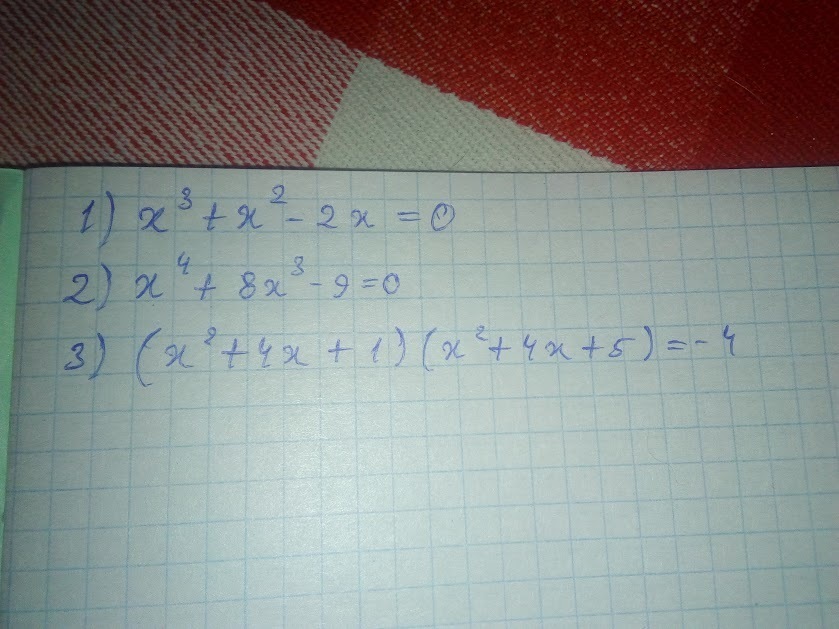 1) x³ + x² - 2x = 0
2) x⁴ + 8x³ - 9 = 0
3) (x² + 4x + 1)(x² + 4x + 5) = - 4